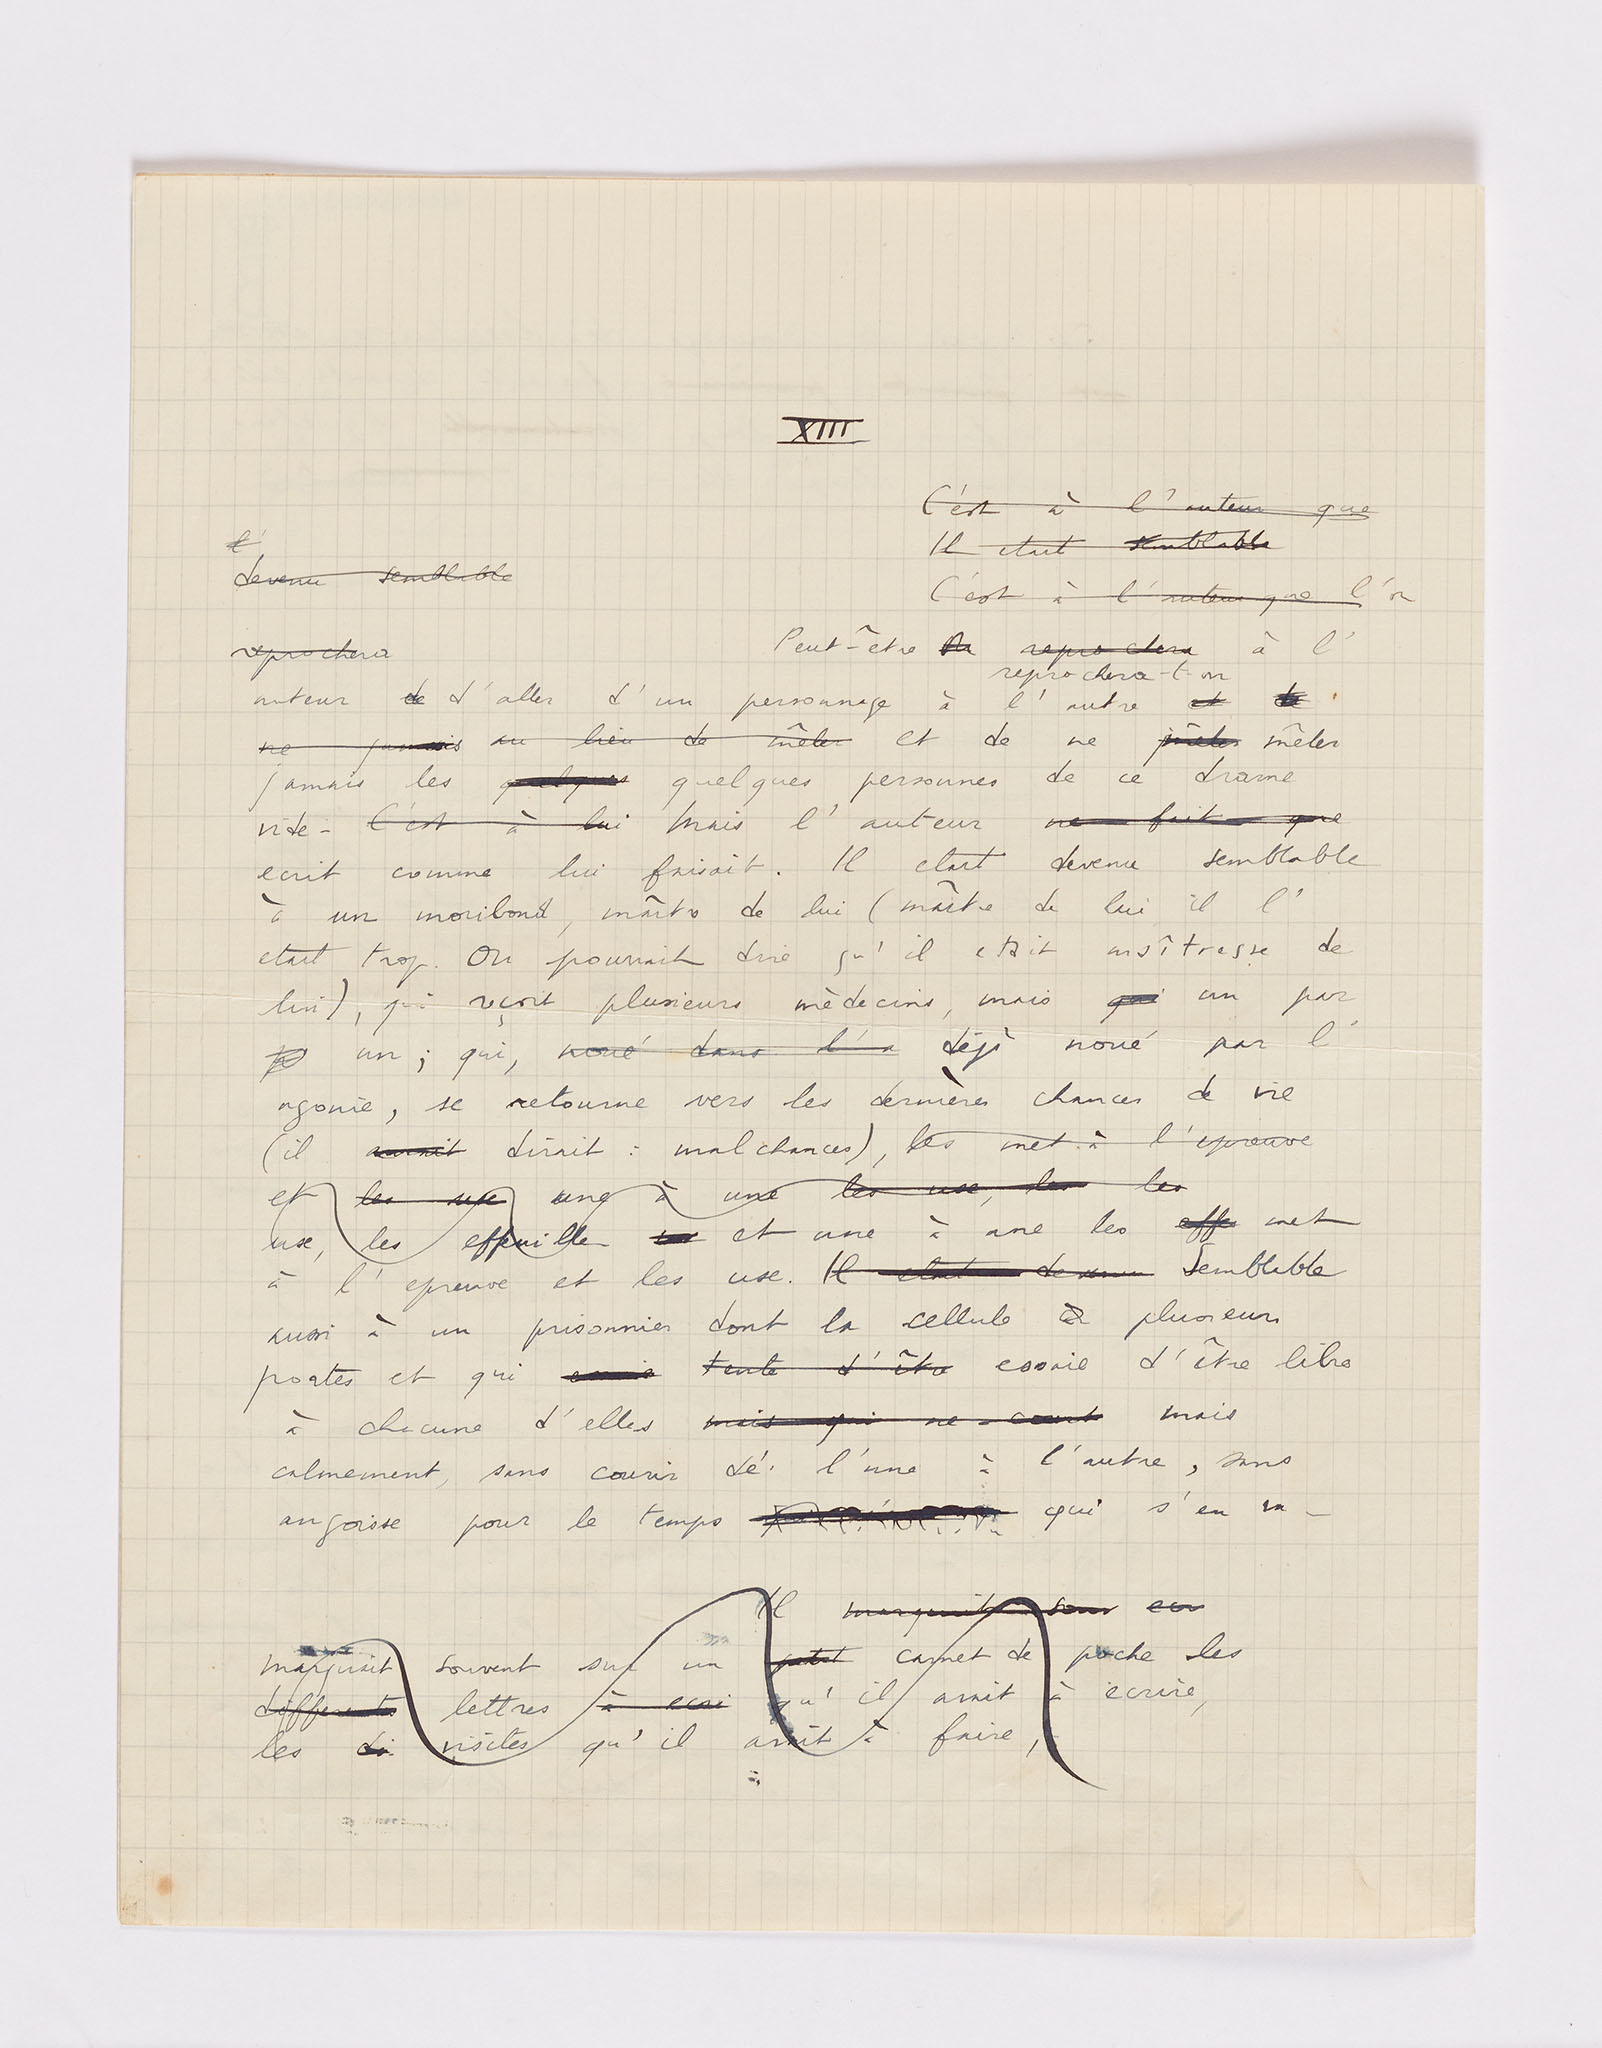 XIII
C'est à l'auteur que
Il etait semblable
l'
devenu semblable
C'est à l'auteur que l'on
reprochera
Peut-être On reprochera à l'
reprochera-t-on
auteur de d'aller d'un personnage à l'autre et de
ne jamais au lieu de mêler et de ne mêler
jamais les quelques quelques personnes de ce drame
vide. C'est à lui Mais l'auteur ne fait que
ecrit comme lui faisait. Il etait devenu semblable
à un moribond, maître de lui (maître de lui il l'
etait trop. On pourrait dire qu'il etait maîtresse de
lui), qui reçoit plusieurs mèdecins, mais qui un par
un ; qui, noué dans l'a déjà noué par l'
agonie, se retourne vers les dernières chances de vie
(il aurait dirait : malchances), les met à l'epreuve
et les use une à une les use, les les
use, les effeuille et une à une les effe met
à l'epreuve et les use. Il etait devenu Semblable
aussi à un prisonnier dont la cellule a plusieurs
portes et qui essaie tente d'être essaie d'être libre
à chacune d'elles mais qui ne court mais
calmement, sans courir de l'une à l'autre, sans
angoisse pour le temps qui s'en va.
Il marquait sous ecr
marquait souvent sur un petit carnet de poche les
differentes lettres à ecri qu'il avait à ecrire,
les di visites qu'il avait à faire,